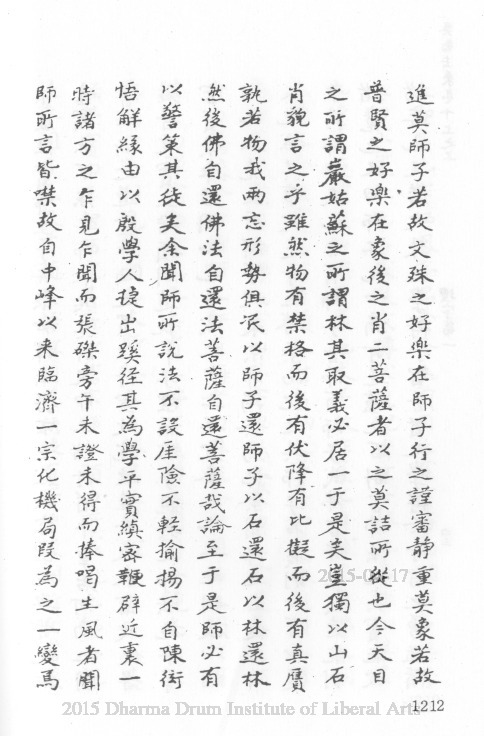 進莫師子若故文殊之好樂在師子行之謹審靜重莫象若故
普賢之好樂在象後之肖二菩薩者以之莫詰所從也今天目
之所謂巖姑蘇之所謂林其取義必居一于是矣豈獨以山石
肖貌言之乎雖然物有禁格而後有伏降有比擬而後有真贗
孰若物我兩忘形勢俱泯以師子還師子以石還石以林還林
然後佛自還佛法自還法菩薩自還菩薩哉論至于是師必有
以警策其徒矣余聞師所說法不設厓險不輕揄揚不自陳衒
悟解緣由以殷學人捷出蹊徑其為學平實縝密鞭辟近裏一
時諸方之乍見乍聞而張磔旁午未證未得而捧喝生風者聞
師所言皆噤故自中峰以来臨濟一宗化機局段為之一變焉
1212
2015 Dharma Drum Institute of Liberal Arts